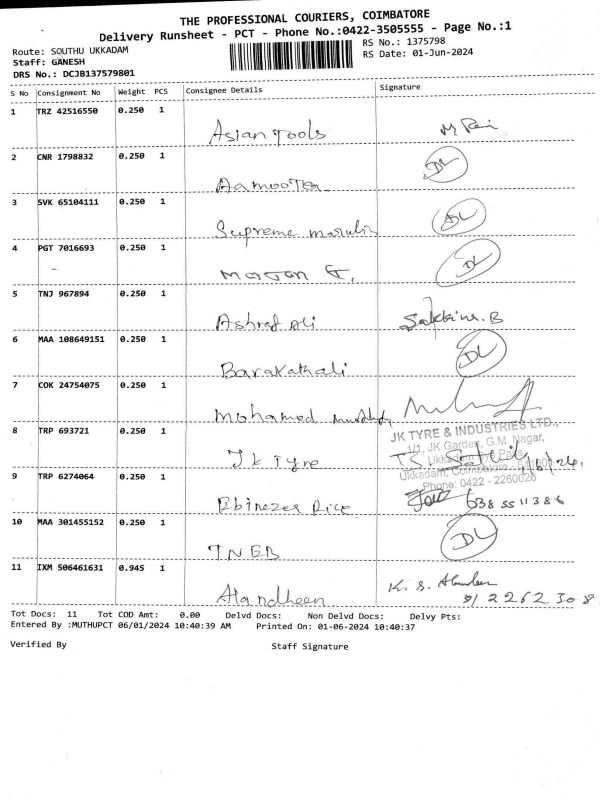 THE PROFESSIONAL COURIERS, COIMBATORE
Delivery Runsheet - PCT - Phone No.:0422-3505555 - Page No.:1
Route: SOUTHU UKKADAM
RS No.: 1375798
Staff: GANESH
RS Date: 01-Jun-2024
DRS No.: DCJB137579801
S No Consignment No Weight PCS Consignee Details Signature
1 TRZ 42516550 0.250 1
Asian Tools
2 CNR 1798832 0.250 1
DL
3 SVK 65104111 0.250 1
Supreme DL
4 PGT 7016693 0.250 1
DL
5 TNJ 967894 0.250 1
Ashraf Ali Sakkina.B
6 MAA 108649151 0.250 1
Barakathali DL
7 COK 24754075 0.250 1
Mohamed
8 TRP 693721 0.250 1
JK TYRE & INDUSTRIES LTD.,
1/1, JK Garden, G.M. Nagar,
Jk Tyre
Ukkadam, Coimbatore
9 TRP 6274064 0.250 1
Phone: 0422 - 2260026
Ebinezer
10 MAA 301455152 0.250 1
TNEB DL
11 IXM 506461631 0.945 1
K. S.
Tot Docs: 11 Tot COD Amt: 0.00 Delvd Docs: Non Delvd Docs: Delvy Pts:
Entered By :MUTHUPCT 06/01/2024 10:40:39 AM Printed On: 01-06-2024 10:40:37
Verified By Staff Signature